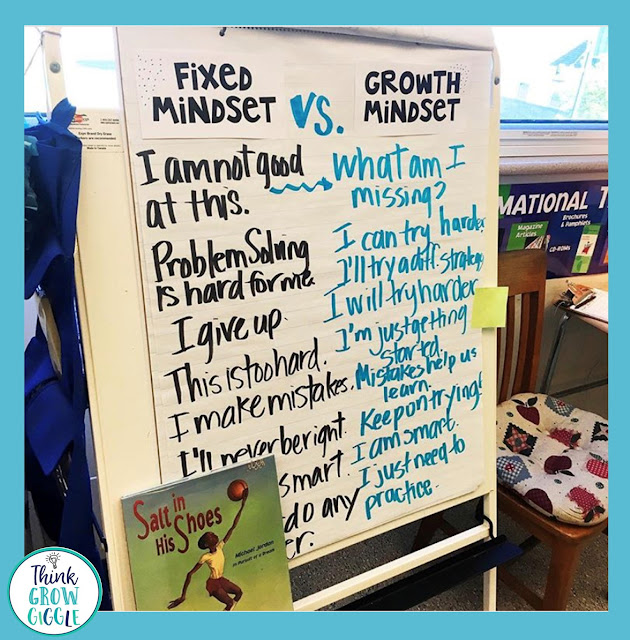 FIXED
MINDSET
VS.
GROWTH
MINDSET
I am not good
at this.
Problem Solving
is hard for me.
I give up.
This is too hard.
I make mistakes.
I'll never be right.
smart.
do any
er.
What am I
missing?
I can try harder
I'll try a diff. strategy
I will try harder
I'm just getting
started.
Mistakes help us
learn.
Keep on trying!
I am smart.
I just need to
practice.
Salt in
His Shoes
Michael Jordan
in Pursuit of a Dream
MATIONAL T
Magazine
Articles
Brochures
& Pamphlets
CD-ROMs
Think
GROW
GIGGLE